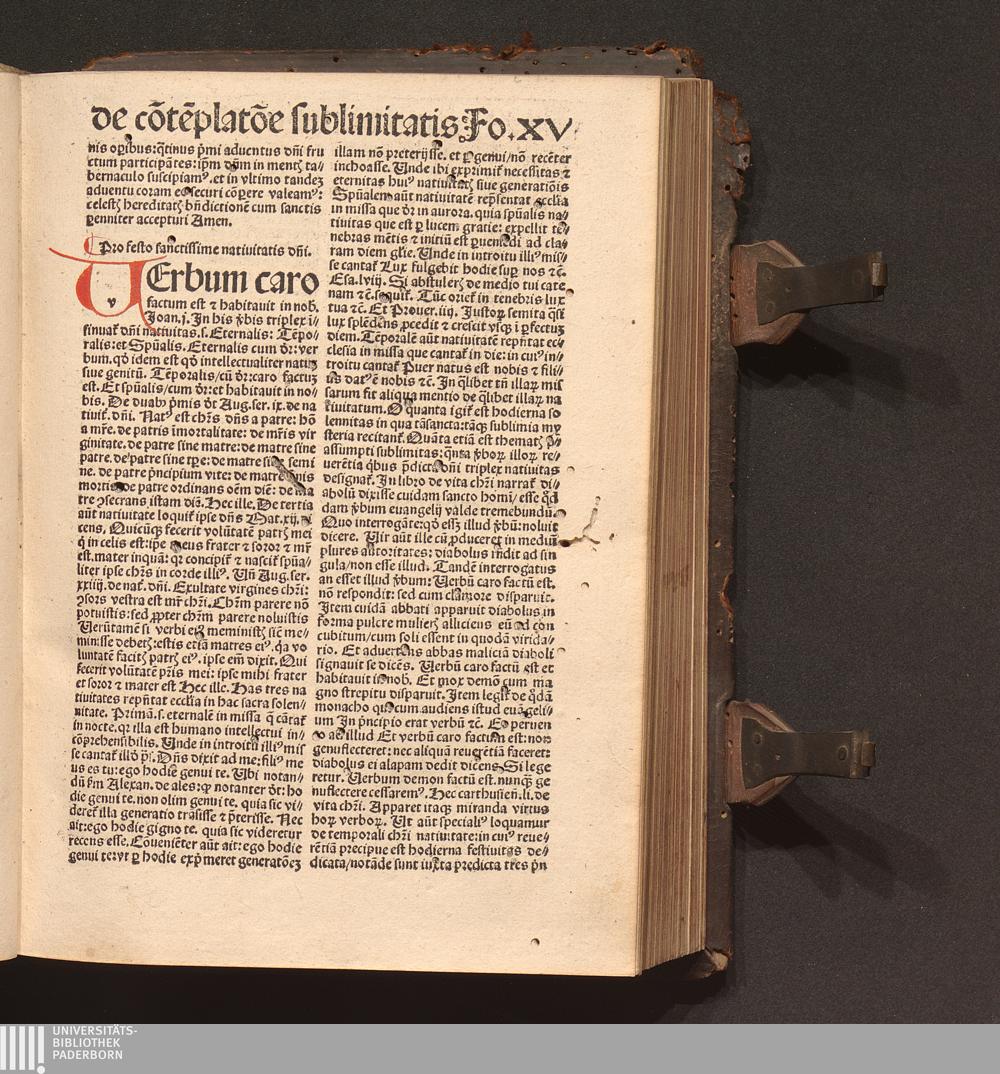 de cõtẽplatõe sublimitatis. Fo. XV
nis oꝑibus: q̃tinus pͥmi aduentus dñi fru
ctum participãtes: ip̃m dñm in mentꝭ ta⸗
bernaculo suscipiamꝰ. et in vltimo tandeꝫ
aduentu coram eo securi cõꝑere valeamꝰ:
celestꝭ hereditatꝭ bñdictionẽ cum sanctis
ꝑenniter accepturi Amen.
Pro festo sanctissime natiuitatis dñi.
UErbum caro
v
factum est ⁊ habitauit in nob.
Joan. j. In his v̾bis triplex ĩ⸗
sinuat᷑ dñi natiuitas. s. Eternalis: Tẽpo⸗
ralis: et Spũalis. Eternalis cum dr̃: ver
bum. qd̕ idem est qd̕ intellectualiter natuꝫ
siue genitũ. Tẽporalis/ cũ dr̃: caro factuꝫ
est. Et spũalis/ cum dr̃: et habitauit in no⸗
bis. De duabꝰ pͥmis dt̃ Aug. ser. ix. de na
tiuit᷑. dñi. Natꝰ est chrs̃ dñs a patre: hõ
a mr̃e. de patris ĩmortalitate: de mr̃is vir
ginitate. de patre sine matre: de matre sine
patre. de patre sine tp̃e: de matre sine semi
ne. de patre pͥncipium vite: de matre finis
mortis. de patre ordinans oẽm diẽ: de ma
tre ↄsecrans istam diẽ. Hec ille. De tertia
aũt natiuitate loquit᷑ ipse dñs Mat. xij. di
cens. Quicũqꝫ fecerit volũtatẽ patrꝭ mei
q̇ in celis est: ip̃e meus frater ⁊ soror ⁊ mr̃
est. mater inquã: qꝛ concipit᷑ ⁊ nascit᷑ spũa⸗
liter ipse chrs̃ in corde illiꝰ. Vñ Aug. ser.
xxiiij. de nat᷑. dñi. Exultate virgines chr̃i:
ↄsors vestra est mr̃ chr̃i. Chr̃m parere nõ
potuistis: sed ꝓpter chr̃m parere noluistis
Uerũtamẽ si verbi eiꝰ meministꝭ sic me⸗
minisse debetꝭ: estis etiã matres eiꝰ. qꝛ vo
luntatẽ facitꝭ patrꝭ eiꝰ. ipse em̃ dixit. Qui
fecerit volũtatẽ pr̃is mei: ipse mihi frater
et soror ⁊ mater est Hec ille. Has tres na
tiuitates repñtat ecclia in hac sacra solen⸗
nitate. Primã. s. eternalẽ in missa q̃ cãtat᷑
in nocte. qꝛ illa est humano intellectui in⸗
cõprehensibilis. Unde in introitu illiꝰ mis
se cantat᷑ illd̕ ps̃. Dñs dixit ad me: filiꝰ me
us es tu: ego hodie genui te. Ubi notan⸗
dũ fm Alexan. de ales: ꝙ notanter dt̃: ho
die genui te. non olim genui te. quia sic vi⸗
deret᷑ illa generatio trãsisse ⁊ p̃terisse. Nec
ait: ego hodie gigno te. quia sic videretur
recens esse. Cõueniẽter aũt ait: ego hodie
genui te: vt ꝑ hodie exp̃meret generatõeꝫ
illam nõ preterijsse. et ꝑ genui/ nõ recẽter
inchoasse. Unde ibi exprimit᷑ necessitas ⁊
eternitas huiꝰ natiuitatꝭ siue generatiõis
Spũalem aũt natiuitatẽ rep̃sentat ecclia
in missa que dr̃ in aurora. quia spũalis na⸗
tiuitas que est ꝑ lucem gratie: expellit te⸗
nebras mẽtis ⁊ initiũ est ꝑueniẽdi ad cla⸗
ram diem glie. Unde in introitu illiꝰ mis⸗
se cantat᷑ Lux fulgebit hodie suꝑ nos ⁊ c̃.
Esa. lviij. Si abstulerꝭ de medio tui cate
nam ⁊ c̃. sequit᷑. Tũc oriet᷑ in tenebris lux
tua ⁊ c̃. Et Prouer. iiij. Justoꝝ semita q̃si
lux splẽdens ꝓcedit ⁊ crescit vsqꝫ ĩ ꝑfectuꝫ
diem. Tẽporalẽ aũt natiuitatẽ repñtat ec⸗
clesia in missa que cantat᷑ in die: in cuiꝰ in⸗
troitu cantat᷑ Puer natus est nobis ⁊ fili⸗
us datꝰ ẽ nobis ⁊ c̃. In q̃libet tñ illaꝝ mis
sarum fit aliqua mentio de q̃libet illaꝝ na
tiuitatum. O quanta igit᷑ est hodierna so
lennitas in qua tã sancta: tãqꝫ sublimia my
steria recitant᷑. Quãta etiã est thematꝭ p̃⸗
assumpti sublimitas: q̃nta v̾boꝝ illoꝝ re⸗
uerẽtia q̇bus p̃dicta dñi triplex natiuitas
designat᷑. In libro de vita chr̃i narrat᷑ di⸗
abolũ dixisse cuidam sancto homĩ/ esse qd̕
dam v̾bum euangelij valde tremebundũ.
Quo interrogãte: qd̕ esset illud v̾bũ: noluit
dicere. Uir aũt ille cũ ꝓduceret in mediũ
plures autoritates: diabolus rñdit ad sin
gula/ non esse illud. Tandẽ interrogatus
an esset illud v̾bum: Uerbũ caro factũ est.
nõ respondit: sed cum clamore disparuit.
Item cuidã abbati apparuit diabolus in
forma pulcre mulierꝭ alliciens eũ ad con
cubitum/ cum soli essent in quodã virida⸗
rio. Et aduertẽs abbas maliciã diaboli
signauit se dicẽs. Uerbũ caro factũ est et
habitauit in nob. Et mox demõ cum ma
gno strepitu disparuit. Item legit᷑ de qd̕ã
monacho qui cum audiens istud euãgeli⸗
um In pͥncipio erat verbũ ⁊ c̃. Eo peruen
to ad illud Et verbũ caro factum est: non
genuflecteret: nec aliquã reuerẽtiã faceret:
diabolus ei alapam dedit dicens. Si lege
retur. Uerbum demon factũ est. nunqꝫ ge
nuflectere cessaremꝰ. Hec carthusieñ. li. de
vita chr̃i. Apparet itaqꝫ miranda virtus
hoꝝ verboꝝ. Ut aũt specialiꝰ loquamur
de temporali chr̃i natiuitate: in cuiꝰ reue⸗
rẽtiã precipue est hodierna festiuitas de⸗
dicata/ notãde sunt iuxta predicta tres pͥn
UNIVERSITÄTS-
BIBLIOTHEK
PADERBORN